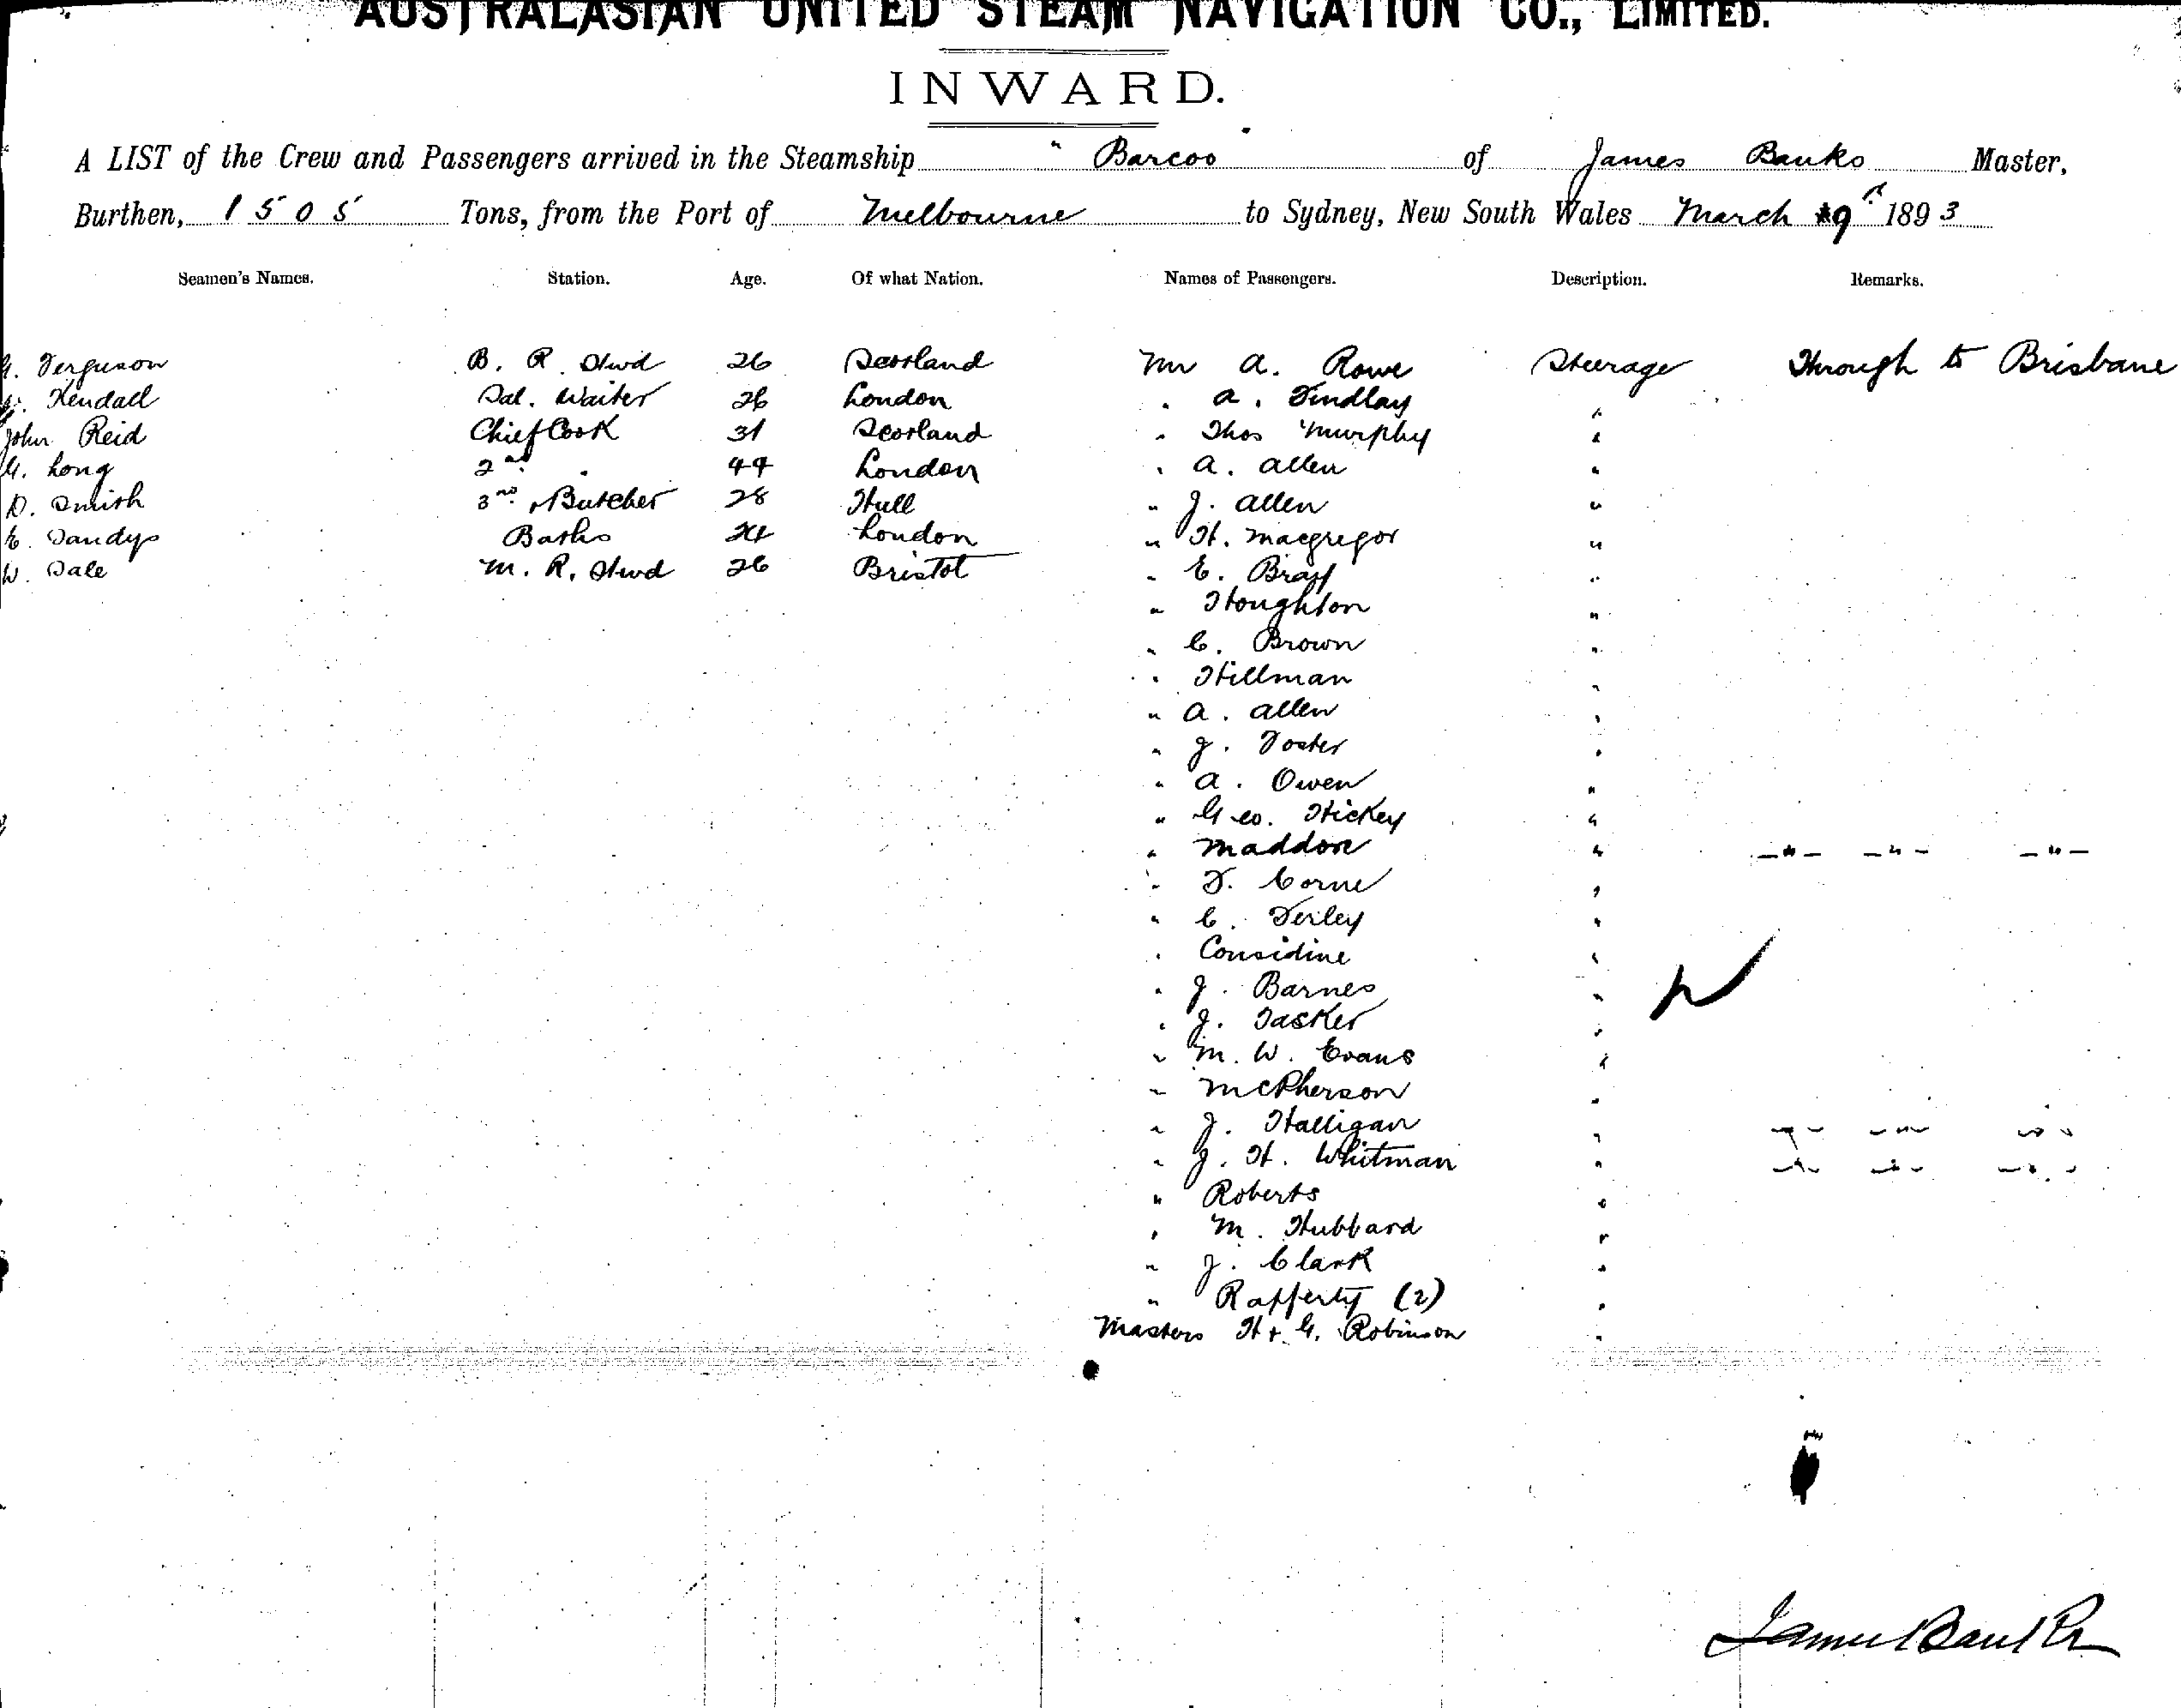 AUSTRALASIAN UNITED STEAM NAVIGATION CO., LIMITED.
INWARD.
A LIST of the Crew and Passengers arrived in the Steamship " Barcoo of James Banks Master,
Burthen, 1505 Tons, from the Port of Melbourne to Sydney, New South Wales March 9th 1893
Seamen's Names. Station. Age. Of what Nation. Names of Passengers. Description. Remarks.
G. Ferguson B. R. Stwd 26 Scotland Mr A. Rowe Steerage Through to Brisbane
Kendall Sal. Waiter 26 London " A. Findlay "
John Reid Chief Cook 31 Scotland " Thos Murphy "
G. Long 2nd " 44 London " A. Allen "
D. Smith 3rd & Butcher 28 Hull " J. Allen "
E. Dandys Baths London " H. Macgregor "
W. Dale M. R. Stwd 26 Bristol " E. Bray "
" Houghton "
" C. Brown "
" Hillman "
" A. Allen "
" J. Foster "
" A. Owen "
" Geo. Hickey "
" Maddon " — " — — " — — " —
" F. Corne "
" C. Ferley "
" Considine "
" J. Barnes "
" J. Tasker "
" M. W. Evans "
" McPherson "
" J. Halligan " — " — — " — — " —
" J. H. Whitman " — " — — " — — " —
" Roberts "
" M. Hubbard "
" J. Clark "
" Rafferty (2) "
Masters H & G. Robinson "
James Banks